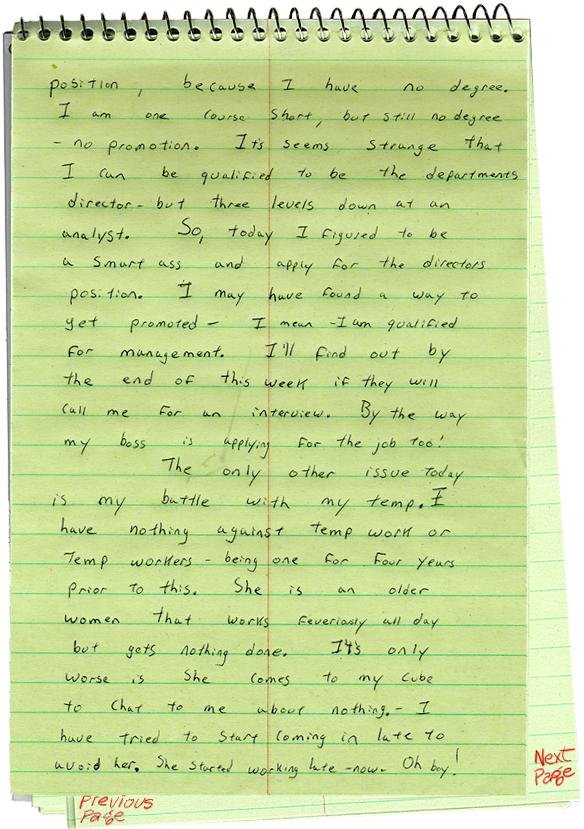 position, because I have no degree.
I am one course short, but still no degree
- no promotion. It's seems strange that
I can be qualified to be the departments
director - but three levels down at an
analyst. So, today I figured to be
a smart ass and apply for the directors
position. I may have found a way to
get promoted - I mean - I am qualified
for management. I'll find out by
the end of this week if they will
call me for an interview. By the way
my boss is applying for the job too!
The only other issue today
is my battle with my temp. I
have nothing against temp work or
temp workers - being one for four years
prior to this. She is an older
women that works feveriosly all day
but gets nothing done. It's only
worse is she comes to my cube
to chat to me about nothing. - I
have tried to start coming in late to
avoid her. She started working late - now. Oh boy!
Next
Page
Previous
Page